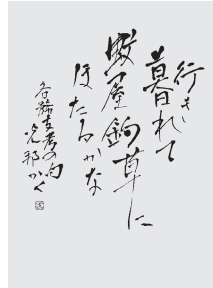 行き
暮れて
蚊屋釣草に
ほたるかな
各務支考の句
かく